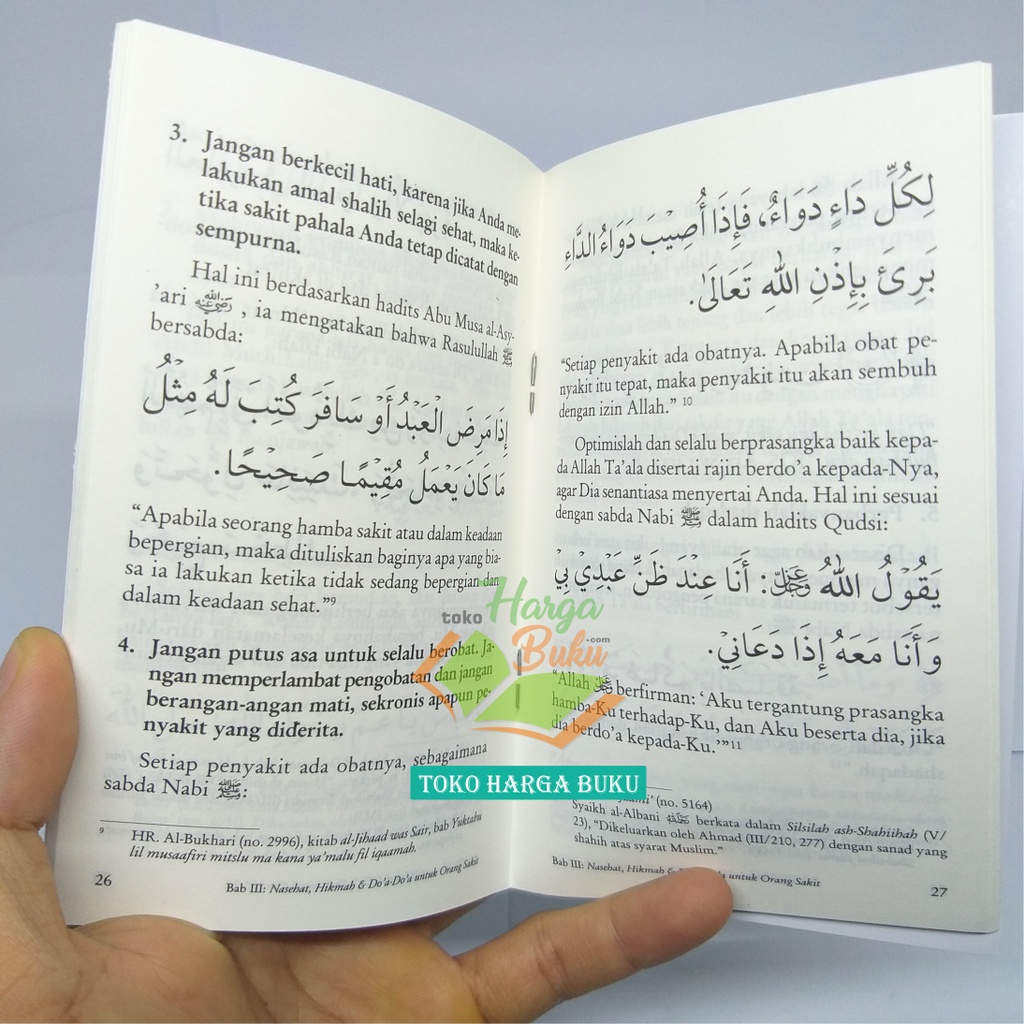 3. Jangan berkecil hati, karena jika Anda me-
lakukan amal shalih selagi sehat, maka ke-
tika sakit pahala Anda tetap dicatat dengan
sempurna.
Hal ini berdasarkan hadits Abu Musa al-Asy-
'ari رضي الله عنه , ia mengatakan bahwa Rasulullah ﷺ
bersabda:
إِذَا مَرِضَ الْعَبْدُ أَوْ سَافَرَ كُتِبَ لَهُ مِثْلُ
مَا كَانَ يَعْمَلُ مُقِيْمًا صَحِيْحًا.
“Apabila seorang hamba sakit atau dalam keadaan
bepergian, maka dituliskan baginya apa yang bia-
sa ia lakukan ketika tidak sedang bepergian dan
dalam keadaan sehat.”9
4. Jangan putus asa untuk selalu berobat. Ja-
ngan memperlambat pengobatan dan jangan
berangan-angan mati, sekronis apapun pe-
nyakit yang diderita.
Setiap penyakit ada obatnya, sebagaimana
sabda Nabi ﷺ:
9 HR. Al-Bukhari (no. 2996), kitab al-Jihaad was Sair, bab Yuktabu
lil musaafiri mitslu ma kana ya'malu fil iqaamah.
26
Bab III: Nasehat, Hikmah & Do'a-Do'a untuk Orang Sakit
لِكُلِّ دَاءٍ دَوَاءٌ، فَإِذَا أُصِيْبَ دَوَاءُ الدَّاءِ
بَرِئَ بِإِذْنِ اللهِ تَعَالَىٰ.
“Setiap penyakit ada obatnya. Apabila obat pe-
nyakit itu tepat, maka penyakit itu akan sembuh
dengan izin Allah.” 10
Optimislah dan selalu berprasangka baik kepa-
da Allah Ta'ala disertai rajin berdo'a kepada-Nya,
agar Dia senantiasa menyertai Anda. Hal ini sesuai
dengan sabda Nabi ﷺ dalam hadits Qudsi:
يَقُوْلُ اللهُ عَزَّ وَجَلَّ: أَنَا عِنْدَ ظَنِّ عَبْدِيْ بِيْ
وَأَنَا مَعَهُ إِذَا دَعَانِيْ.
“Allah ﷻ berfirman: ‘Aku tergantung prasangka
hamba-Ku terhadap-Ku, dan Aku beserta dia, jika
dia berdo'a kepada-Ku.’”11
(no. 5164)
Syaikh al-Albani berkata dalam Silsilah ash-Shahiihah (V/
23), “Dikeluarkan oleh Ahmad (III/210, 277) dengan sanad yang
shahih atas syarat Muslim.”
Bab III: Nasehat, Hikmah & untuk Orang Sakit
27
toko Harga
Buku.com
TOKO HARGA BUKU